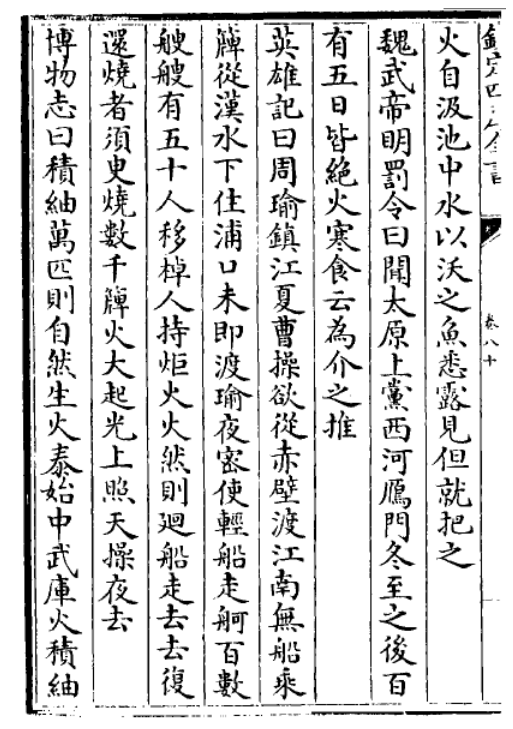 欽定四庫全書
卷八十
火自汲池中水以沃之魚悉露見但就把之
魏武帝明罰令曰聞太原上黨西河鴈門冬至之後百
有五日皆絶火寒食云為介之推
英雄記曰周瑜鎮江夏曹操欲從赤壁渡江南無船乘
簰從漢水下住浦口未即渡瑜夜密使輕船走舸百數
艘艘有五十人移棹人持炬火火然則廻船走去去復
還燒者須臾燒數千簰火大起光上照天操夜去
博物志曰積紬萬匹則自然生火泰始中武庫火積紬